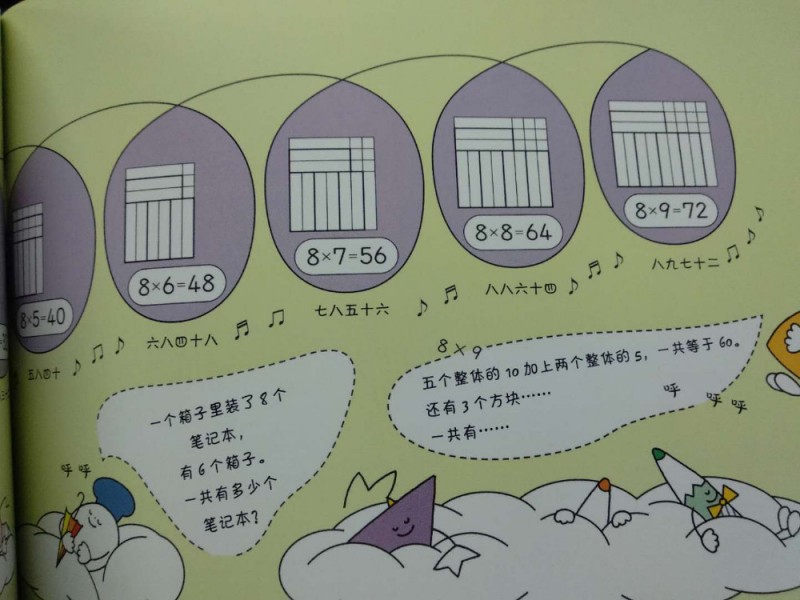 8×5=40
8×6=48
8×7=56
8×8=64
8×9=72
五八四十
六八四十八
七八五十六
八八六十四
八九七十二
一个箱子里装了8个
笔记本，
有6个箱子。
一共有多少个
笔记本？
呼 呼
8×9
五个整体的10加上两个整体的5，一共等于60。
还有3个方块……
一共有……
呼 呼 呼